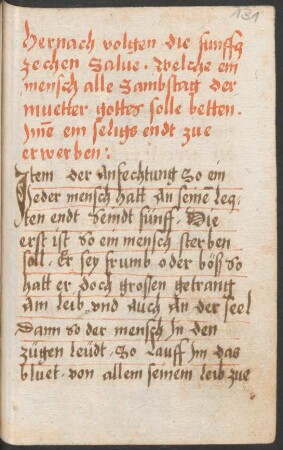 131
Hernach volgen die funffʒ
zechen Salue. Welche ein
mensch alle Sambstag der
muetter gottes solle betten.
Ime ein seligs endt zue
erwerben:.
Item der Anfechtung so ein
Jeder mensch hatt an seinē leʒ,
ten endt Seindt funff. Die
erst ist so ein mensch sterben
soll. Er sey frumb oder böß so
hatt er doch grossen getrang
Am leib vnd auch An der seel
Dann so der mensch In den
zügen leüdt. So lauff Im das
bluet. von allem seinem leib zue